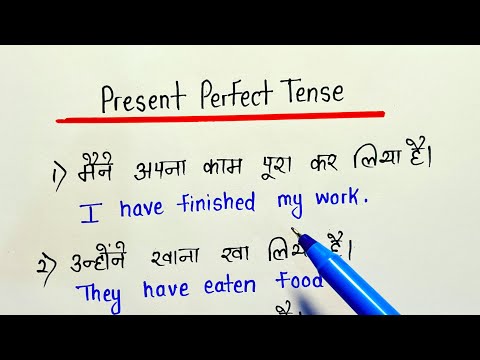 Present Perfect Tense
1) मैंने अपना काम पूरा कर लिया है।
I have finished my work.
2) उन्होंने खाना खा लिया है।
They have eaten Food
है।